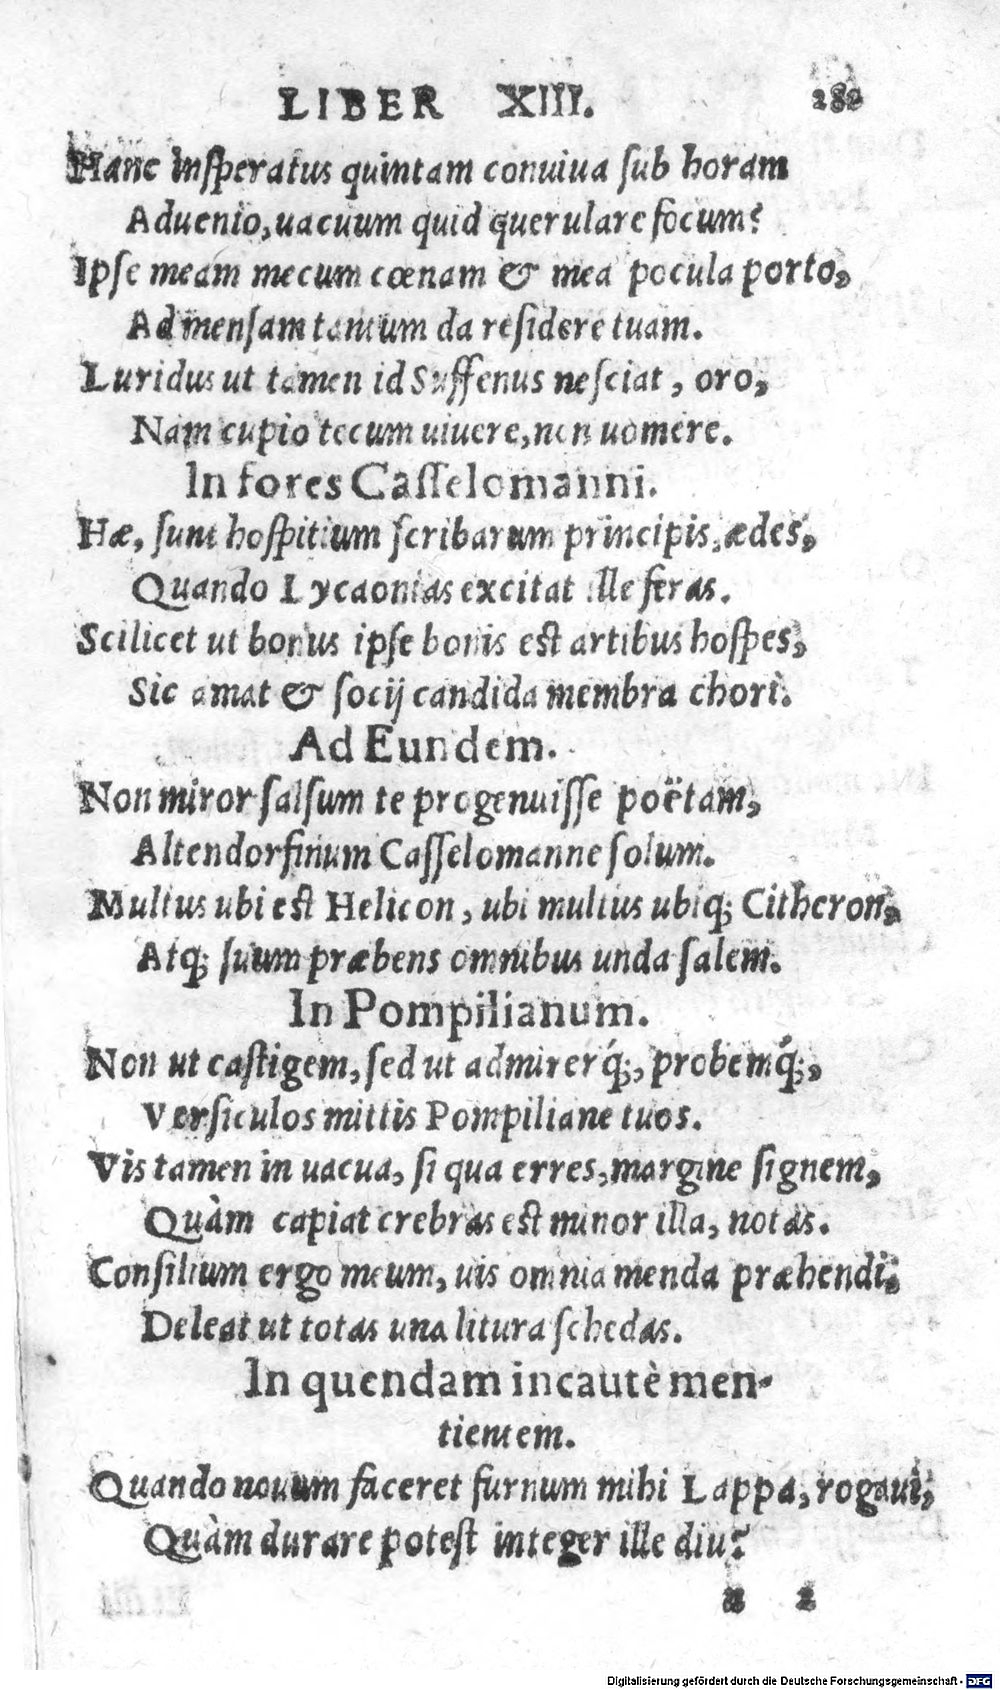 LIBER XIII. 282
Hanc insperatus quintam conuiua sub horam
Aduenio, uacuum quid querulare focum?
Ipse meam mecum cœnam & mea pocula porto,
Ad mensam tantum da residere tuam.
Luridus ut tamen id Suffenus nesciat, oro,
Nam cupio tecum uiuere, non uomere.
In fores Casselomanni.
Hæ, sunt hospitium scribarum principis, ædes,
Quando Lycaonias excitat ille feras.
Scilicet ut bonus ipse bonis est artibus hospes,
Sic amat & socij candida membra chori.
Ad Eundem.
Non miror salsum te progenuisse poëtam,
Altendorfinum Casselomanne solum.
Multus ubi est Helicon, ubi multus ubiq; Citheron,
Atq; suum præbens omnibus unda salem.
In Pompilianum.
Non ut castigem, sed ut admirerq́;, probemq́;,
Versiculos mittis Pompiliane tuos.
Vis tamen in uacua, si qua erres, margine signem,
Quàm capiat crebras est minor illa, notas.
Consilium ergo meum, uis omnia menda præhendi,
Deleat ut totas una litura schedas.
In quendam incautè men-
tientem.
Quando nouum faceret furnum mihi Lappa, rogaui,
Quàm durare potest integer ille diu?
2
Digitalisierung gefördert durch die Deutsche Forschungsgemeinschaft - DFG